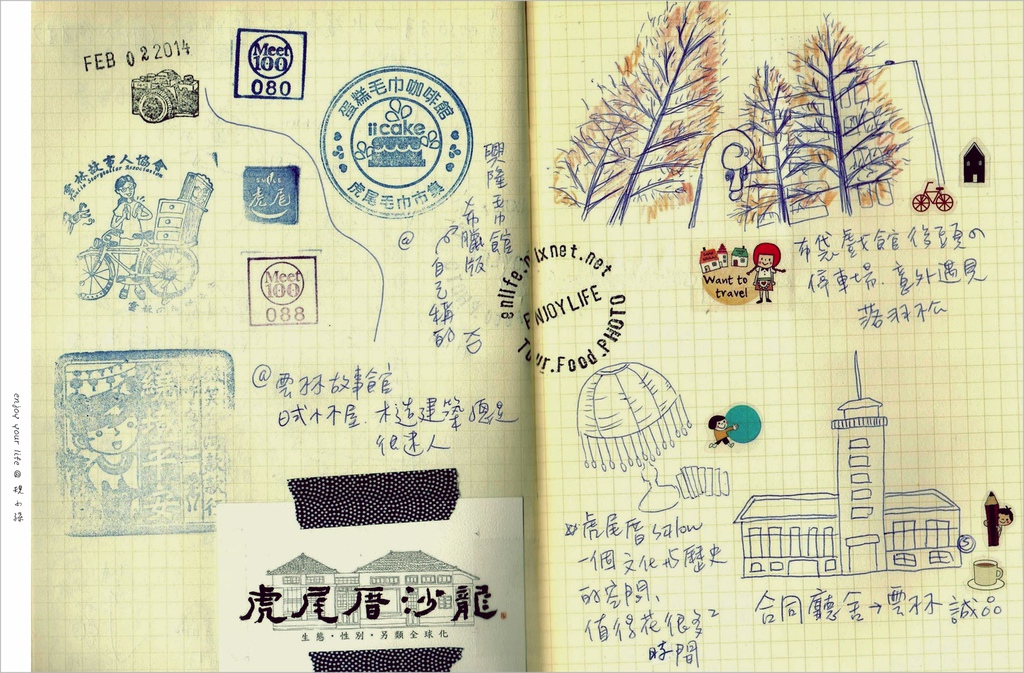 FEB 02 2014
Meet
100
080
蛋糕毛巾咖啡館
iicake
虎尾毛巾市集
雲林故事人協會
Yunlin Storyteller Association
虎尾
Meet
100
088
興隆毛巾館
希臘版
自己稱的
@
@雲林故事館
日式小木屋.木造建築總是
很迷人
虎尾厝沙龍
生態・性別・另類全球化
enlife.pixnet.net
ENJOY LIFE
Tour.Food.PHOTO
Want to
travel
布袋戲館後頭の
停車場.意外遇見
落羽松
虎尾厝salon
一個文化与歷史
的空間、
值得花很多
時間
合同廳舍→雲林 誠品
enjoy your life @